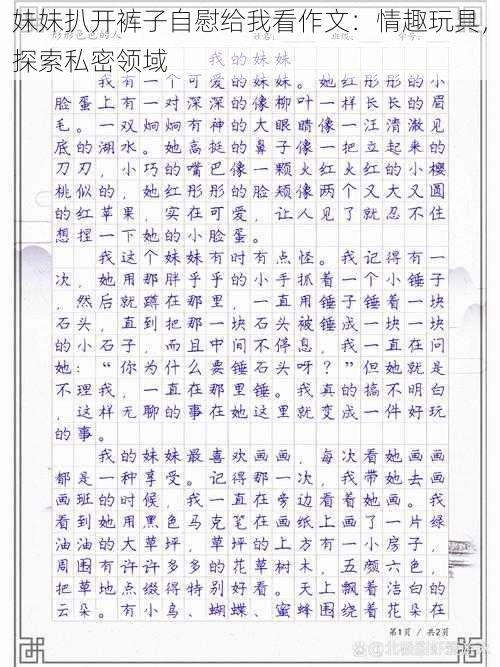 我的妹妹
我有一个可爱的妹妹。她红彤彤的小
脸蛋上有一对深深的像柳叶一样长长的眉
毛。一双炯炯有神的大眼睛像一汪清澈见
底的湖水。她高挺的鼻子像一把立起来的
刀刃，小巧的嘴巴像一颗火红火红的小樱
桃似的，她红彤彤的脸颊像两个又大又圆
的红苹果，实在可爱，让人见了就忍不住
想捏一下她的小脸蛋。
我这个妹妹有时有点怪。我记得有一
次，她用那胖乎乎的小手抓着一个小锤子
，然后就蹲在那里，一直用锤子锤着一块
石头，直到把那一块石头被锤成一块一块
的小石子，而且中间不停息，我一直在问
她：“你为什么要锤石头呀？”但她就是
不理我，一直在那里锤。我真的搞不明白
，这样无聊的事在她这里就变成一件好玩
的事。
我的妹妹最喜欢画画，每次看她画画
都是一种享受。记得那一次，我带她去画
画班的时候，我一直在旁边看着她画。我
看到她用黑色马克笔在画纸上画了一片绿
油油的大草坪，草坪的上方有一小房子，
周围有许许多多的花草树木，五颜六色，
把草地点缀得特别好看。天上飘着洁白的
云朵。有小鸟、蝴蝶、蜜蜂围绕着花朵在
第1页 / 共2页